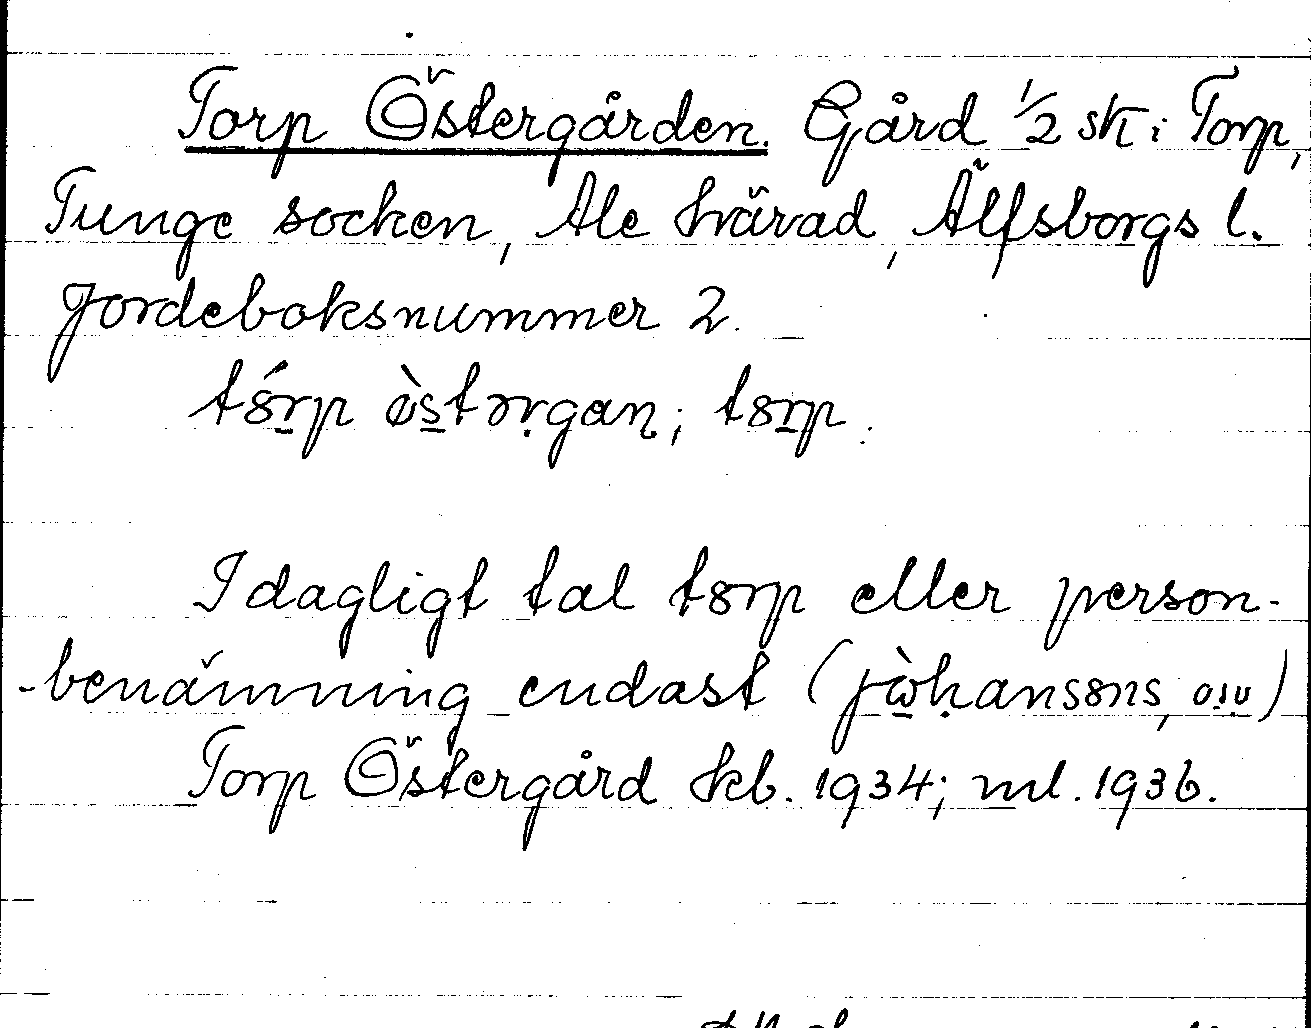 Torp Östergården. Gård 1/2 sk i Torp,
Tunge socken, Ale härad, Älfsborgs l.
Jordeboksnummer 2.
tórp østərgan; torp.
I dagligt tal torp eller person-
-benämning endast (jòhansons, osv)
Torp Östergård kb. 1934; ml. 1936.